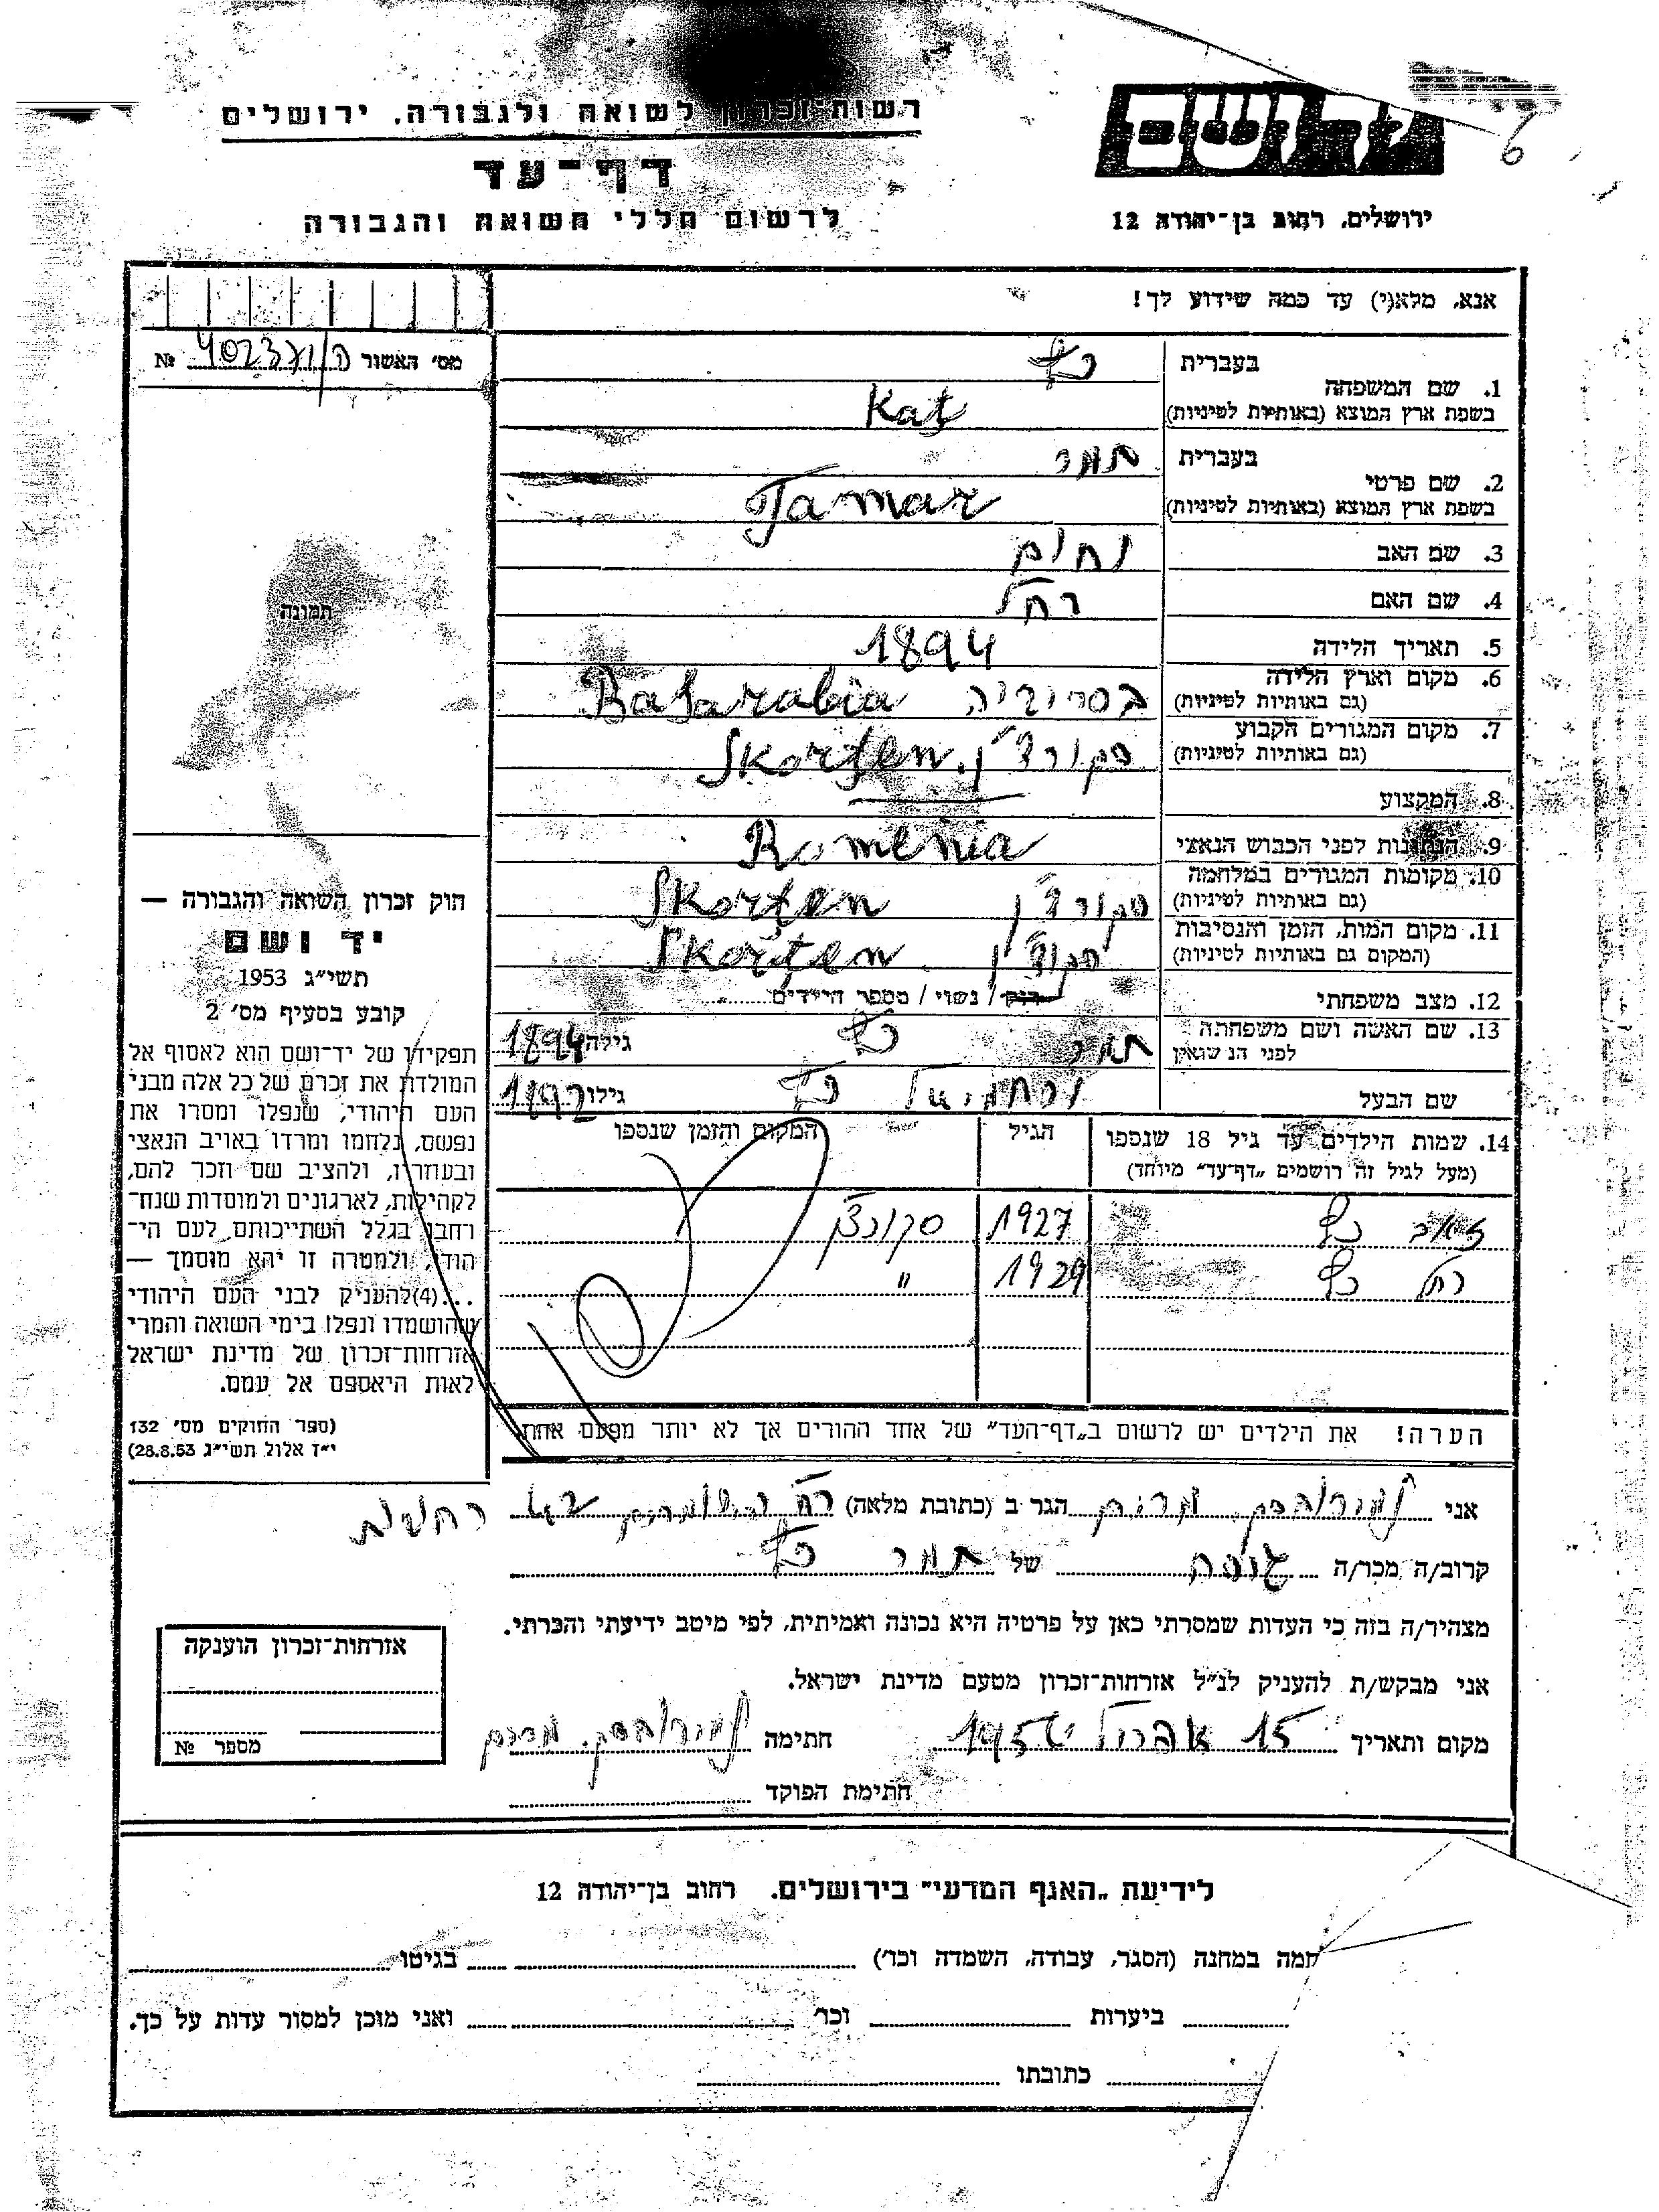 רשות־זכרון לשואה ולגבורה, ירושלים
דף־עד
לרשום חללי השואה והגבורה
ירושלים, רחוב בן־יהודה 12
6
אנא, מלא(י) עד כמה שידוע לך!
מס׳ האשור № 402371/ה
תמונה
1. שם המשפחה
בעברית כץ
בשפת ארץ המוצא (באותיות לטיניות) Kaţ
2. שם פרטי
בעברית תמר
בשפת ארץ המוצא (באותיות לטיניות) Tamar
3. שם האב נחום
4. שם האם רחל
5. תאריך הלידה 1894
6. מקום וארץ הלידה
(גם באותיות לטיניות) בסרביה Basarabia
7. מקום המגורים הקבוע
(גם באותיות לטיניות) סקורצ'ן. Skorţen
8. המקצוע
9. הנתינות לפני הכבוש הנאצי Romenia
10. מקומות המגורים במלחמה
(גם באותיות לטיניות) סקורצ'ן Skorţen
11. מקום המות, הזמן והנסיבות
(המקום גם באותיות לטיניות) סקורצ'ן Skorţen
12. מצב משפחתי רווק / נשוי / מספר הילדים
13. שם האשה ושם משפחתה
לפני הנשואין תמר כץ גילה 1894
שם הבעל ירחמיאל כץ גילו 1892
14. שמות הילדים עד גיל 18 שנספו
(מעל לגיל זה רושמים „דף־עד” מיוחד)
הגיל
המקום והזמן שנספו
זאב כץ 1927 סקורצן
רחל כץ 1929 "
הערה! את הילדים יש לרשום ב„דף־העד” של אחד ההורים אך לא יותר מפעם אחת
חוק זכרון השואה והגבורה —
יד ושם
תשי״ג 1953
קובע בסעיף מס׳ 2
תפקידו של יד־ושם הוא לאסוף אל
המולדת את זכרם של כל אלה מבני
העם היהודי, שנפלו ומסרו את
נפשם, נלחמו ומרדו באויב הנאצי
ובעוזריו, ולהציב שם וזכר להם,
לקהילות, לארגונים ולמוסדות שנח־
רחבו בגלל השתייכותם לעם הי־
הודי, ולמטרה זו יהא מוסמך —
...(4) להעניק לבני העם היהודי
שהושמדו ונפלו בימי השואה והמרי
אזרחות־זכרון של מדינת ישראל
לאות היאספם אל עמם.
(ספר החוקים מס׳ 132
י״ז אלול תשי״ג 28.8.53)
אני מרים הגר ב (כתובת מלאה) רח 42 רחובות
קרוב/ה מכר/ה גיסה של תמר כץ
מצהיר/ה בזה כי העדות שמסרתי כאן על פרטיה היא נכונה ואמיתית, לפי מיטב ידיעתי והכרתי.
אני מבקש/ת להעניק לנ״ל אזרחות־זכרון מטעם מדינת ישראל.
מקום ותאריך 15 אפריל 1957 חתימה מרים
חתימת הפוקד
אזרחות־זכרון הוענקה
מספר №
לידיעת „האגף המדעי” בירושלים, רחוב בן־יהודה 12
במחנה (הסגר, עבודה, השמדה וכו׳) בגיטו
ביערות וכו׳ ואני מוכן למסור עדות על כך.
כתובתו